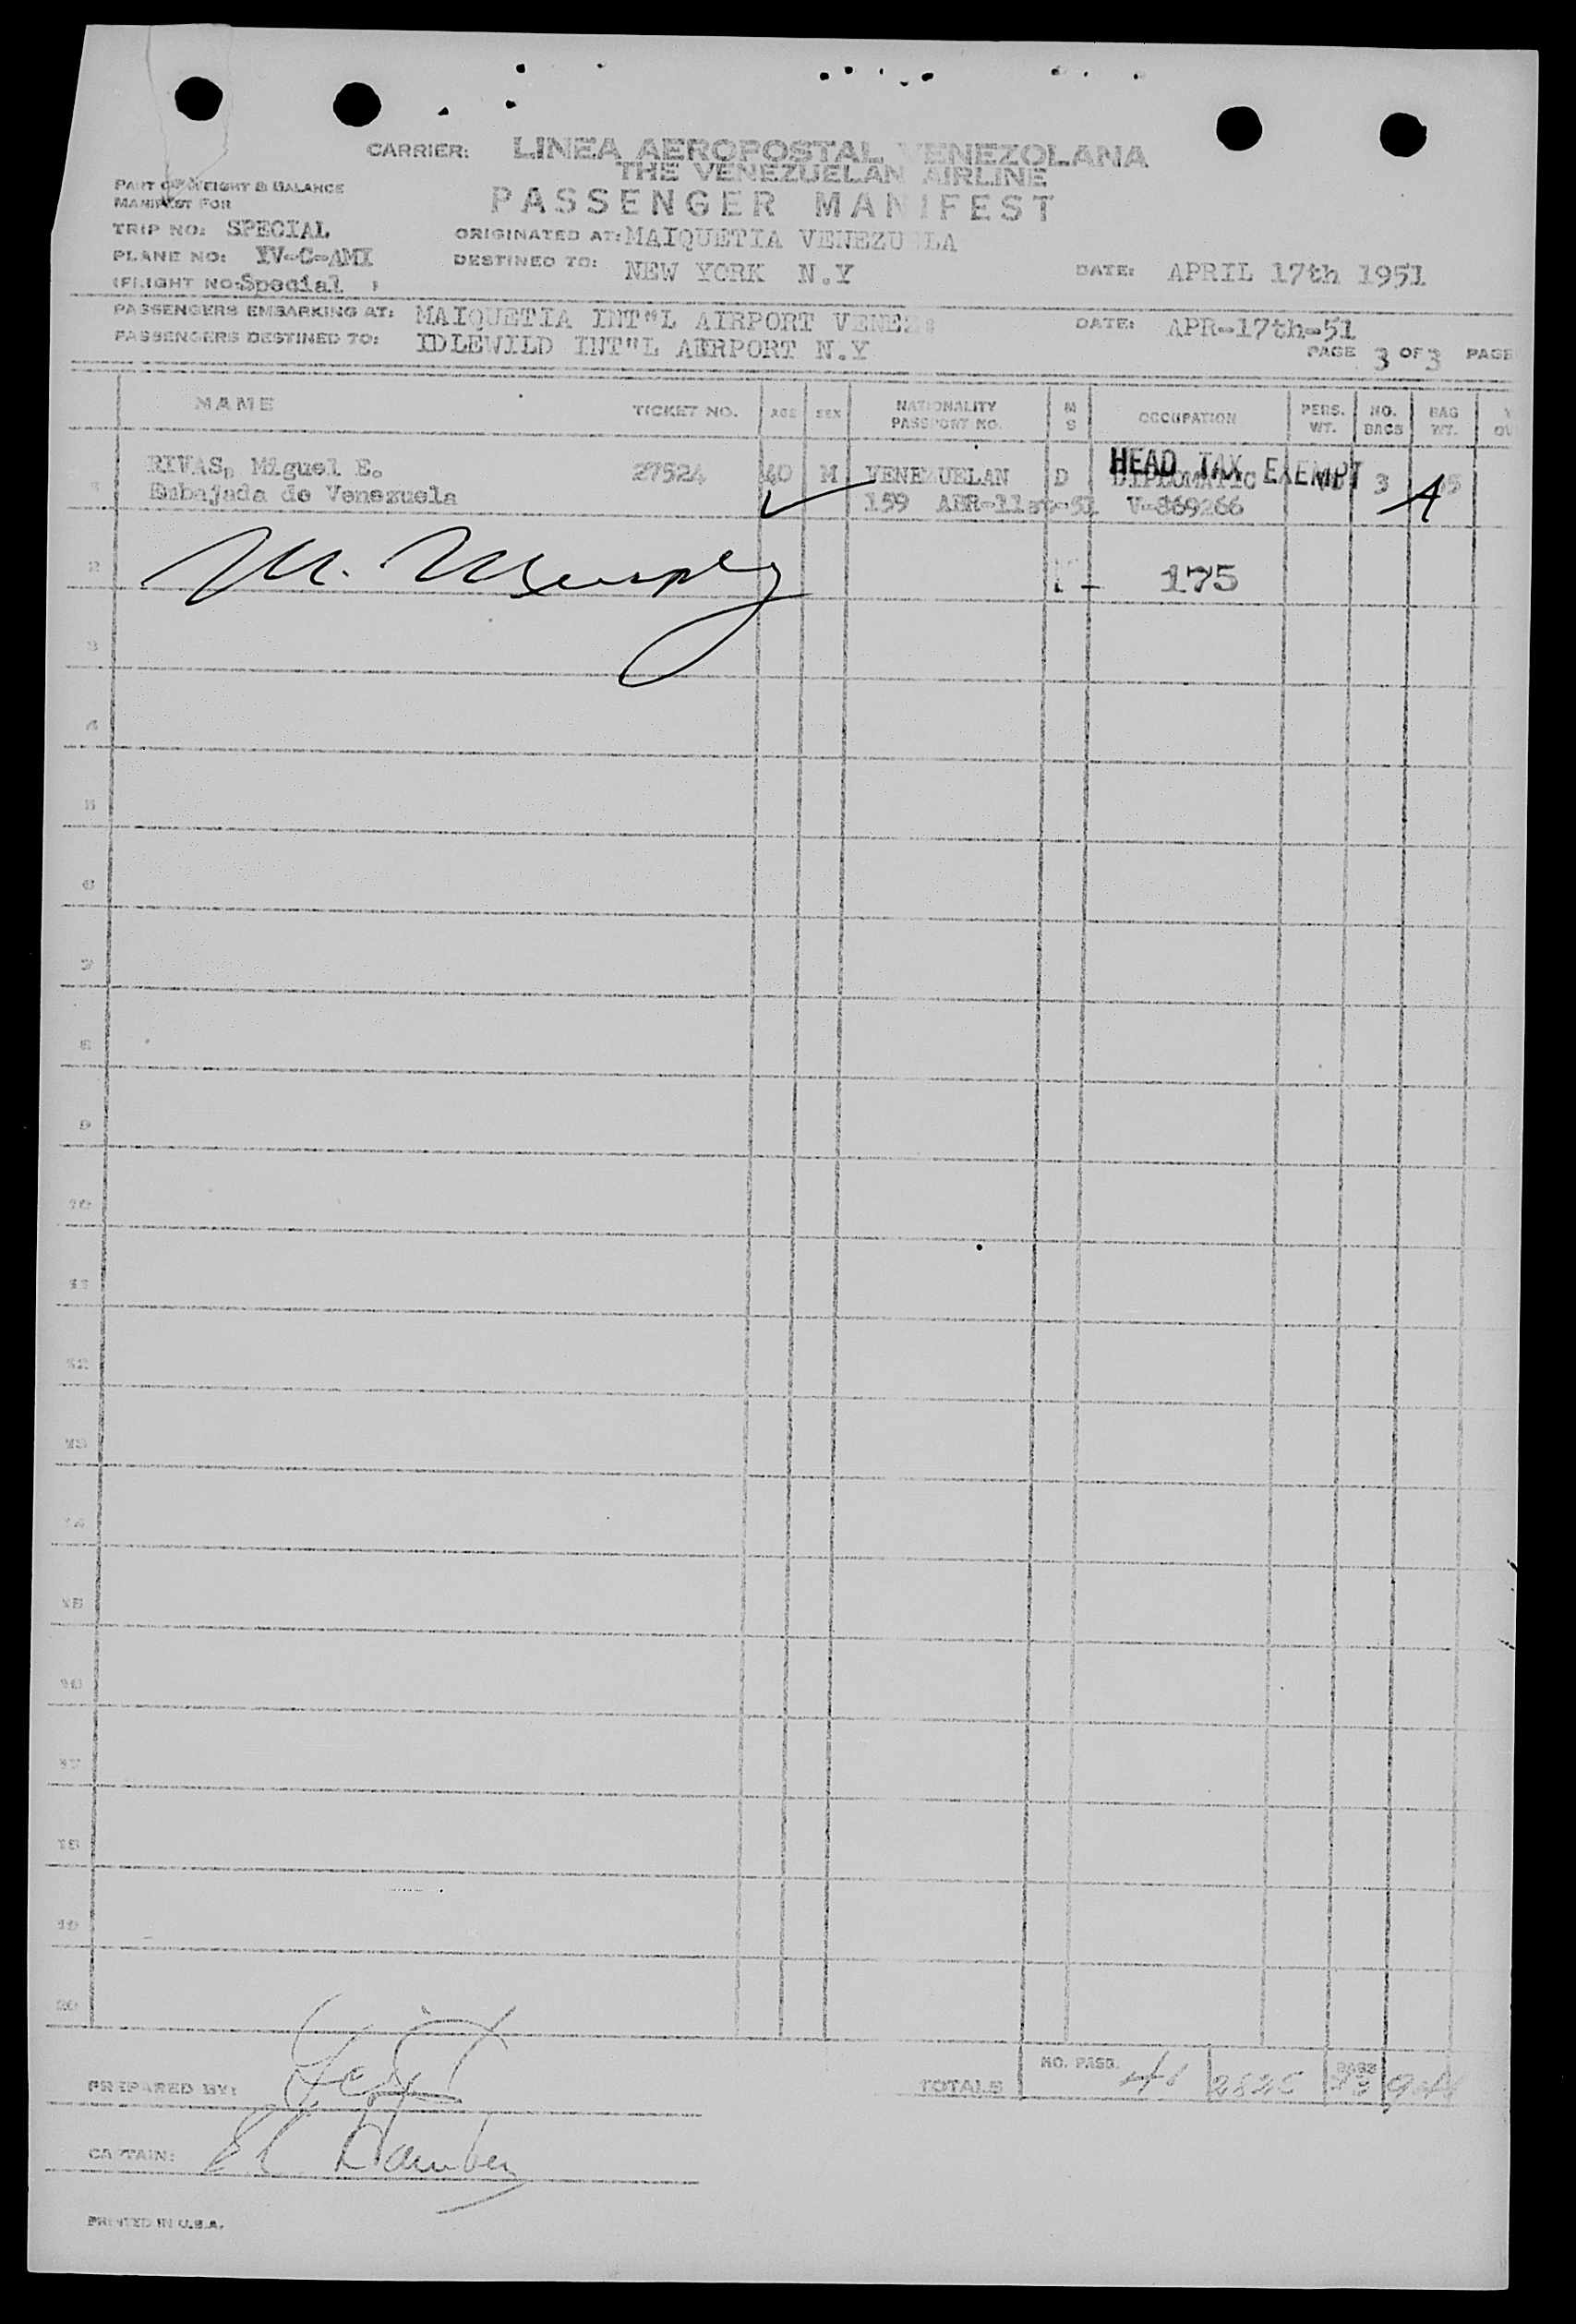 CARRIER: LINEA AEROPOSTAL VENEZOLANA
THE VENEZUELAN AIRLINE
PASSENGER MANIFEST
PART OF WEIGHT & BALANCE
MANIFEST FOR
TRIP NO: SPECIAL
PLANE NO: YV-C-AMI
(FLIGHT NO: Special )
ORIGINATED AT: MAIQUETIA VENEZUELA
DESTINED TO: NEW YORK N.Y
DATE: APRIL 17th 1951
PASSENGERS EMBARKING AT: MAIQUETIA INT"L AIRPORT VENEZ
DATE: APR-17th-51
PASSENGERS DESTINED TO: IDLEWILD INT"L AIRPORT N.Y
PAGE 3 OF 3 PAGE
NAME TICKET NO. AGE SEX NATIONALITY PASSPORT NO. M S OCCUPATION PERS. WT. NO. BAGS BAG WT.
HEAD TAX EXEMPT
1 RIVAS, Miguel E. 27524 40 M VENEZUELAN D DIPLOMATIC 3
Embajada de Venezuela 159 V-869266
2 M. Murphy 175
3
4
5
6
7
8
9
10
11
12
13
14
15
16
17
18
19
20
TOTALS NO. PASS. 41 BAGS
PREPARED BY:
CAPTAIN:
PRINTED IN U.S.A.